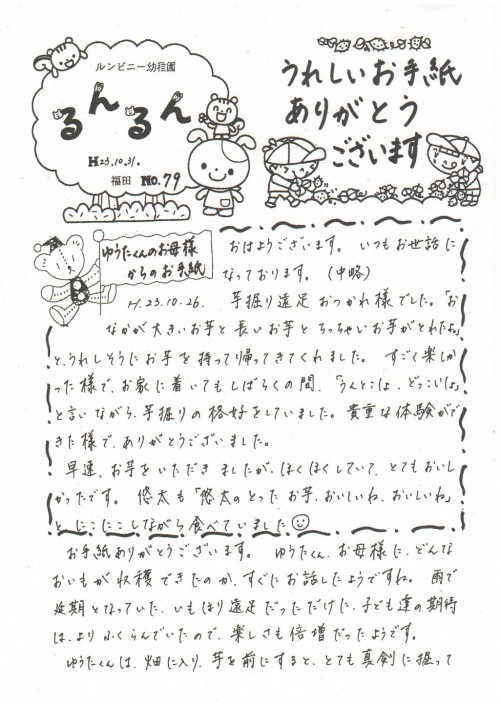 ルンビニー幼稚園
るんるん
H23.10.31.
福田 No.79
うれしいお手紙
ありがとう
ございます
ゆうたくんのお母様
からのお手紙
H.23.10.26.
おはようございます。 いつもお世話に
なっております。(中略)
芋掘り遠足 おつかれ様でした。「お
なかが大きいお芋と長いお芋とちっちゃいお芋がとれたよ」
と、うれしそうにお芋を持って帰ってきてくれました。 すごく楽しか
った様で、お家に着いてもしばらくの間、「うんとこしょ、どっこいしょ」
と言いながら、芋掘りの格好をしていました。貴重な体験がで
きた様で、ありがとうございました。
早速、お芋をいただきましたが、ほくほくしていて、とてもおいし
かったです。 悠太も「悠太のとったお芋、おいしいね、おいしいね」
と、にこにこしながら食べていました
お手紙ありがとうございます。 ゆうたくん、お母様に、どんな
おいもが収穫できたのか、すぐにお話したようですね。 雨で
延期となっていた、いもほり遠足だっただけに、子ども達の期待
は、よりふくらんでいたので、楽しさも倍増だったようです。
ゆうたくんは、畑に入り、芋を前にすると、とても真剣に掘って